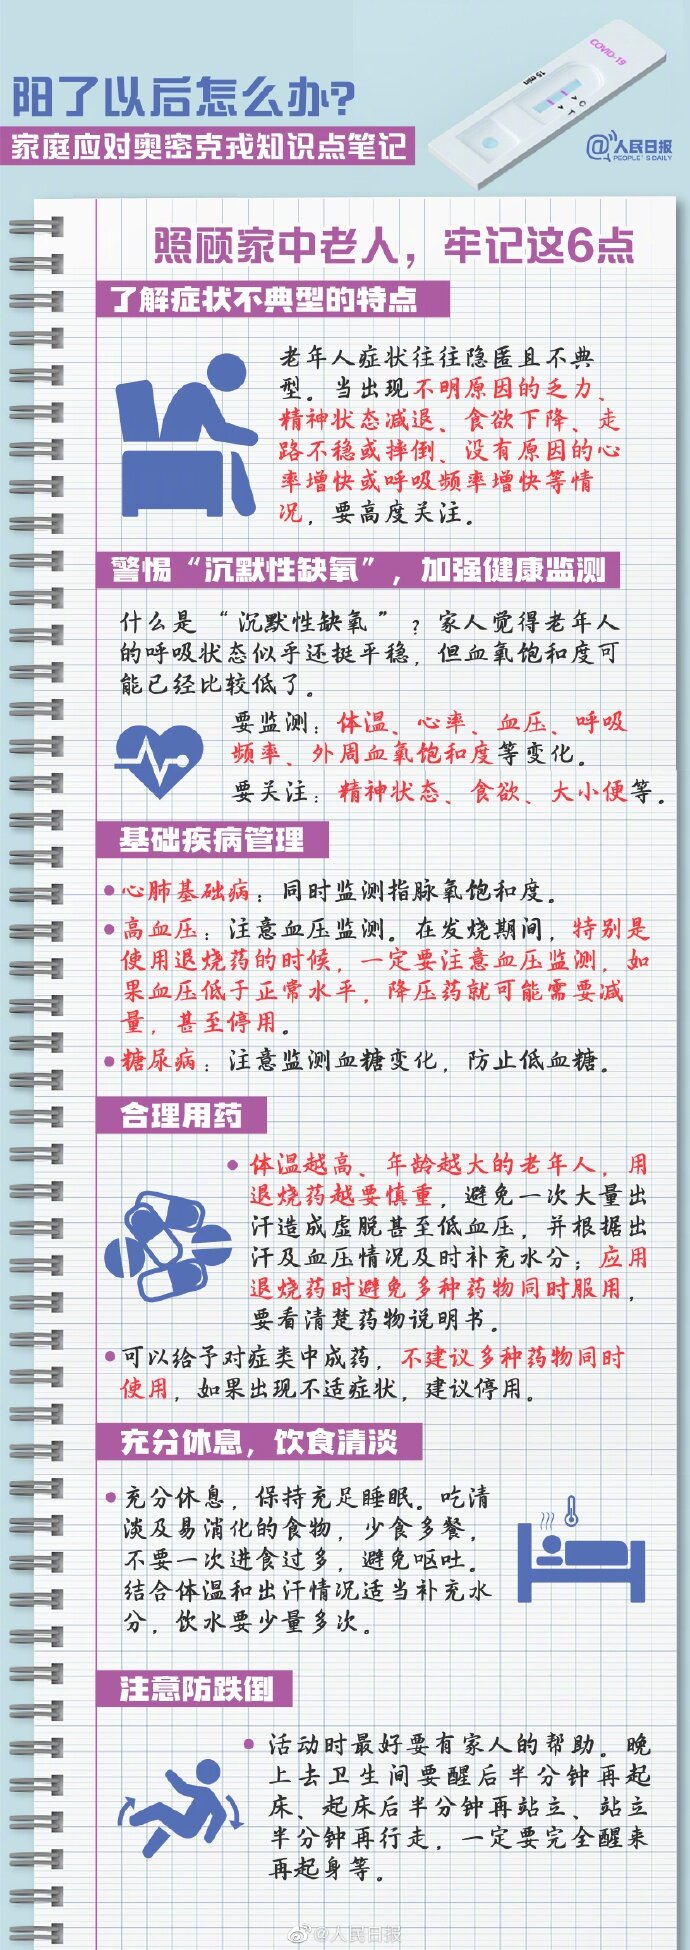 阳了以后怎么办？
家庭应对奥密克戎知识点笔记
COVID-19
15 min
C
T
@人民日报
PEOPLE'S DAILY
照顾家中老人，牢记这6点
了解症状不典型的特点
老年人症状往往隐匿且不典
型。当出现不明原因的乏力、
精神状态减退、食欲下降、走
路不稳或摔倒、没有原因的心
率增快或呼吸频率增快等情
况，要高度关注。
警惕“沉默性缺氧”，加强健康监测
什么是“沉默性缺氧”？家人觉得老年人
的呼吸状态似乎还挺平稳，但血氧饱和度可
能已经比较低了。
要监测：体温、心率、血压、呼吸
频率、外周血氧饱和度等变化。
要关注：精神状态、食欲、大小便等。
基础疾病管理
●心肺基础病：同时监测指脉氧饱和度。
●高血压：注意血压监测。在发烧期间，特别是
使用退烧药的时候，一定要注意血压监测，如
果血压低于正常水平，降压药就可能需要减
量，甚至停用。
●糖尿病：注意监测血糖变化，防止低血糖。
合理用药
●体温越高、年龄越大的老年人，用
退烧药越要慎重，避免一次大量出
汗造成虚脱甚至低血压，并根据出
汗及血压情况及时补充水分；应用
退烧药时避免多种药物同时服用，
要看清楚药物说明书。
●可以给予对症类中成药，不建议多种药物同时
使用，如果出现不适症状，建议停用。
充分休息，饮食清淡
●充分休息，保持充足睡眠。吃清
淡及易消化的食物，少食多餐，
不要一次进食过多，避免呕吐。
结合体温和出汗情况适当补充水
分，饮水要少量多次。
注意防跌倒
●活动时最好要有家人的帮助。晚
上去卫生间要醒后半分钟再起
床、起床后半分钟再站立、站立
半分钟再行走，一定要完全醒来
再起身等。
@人民日报